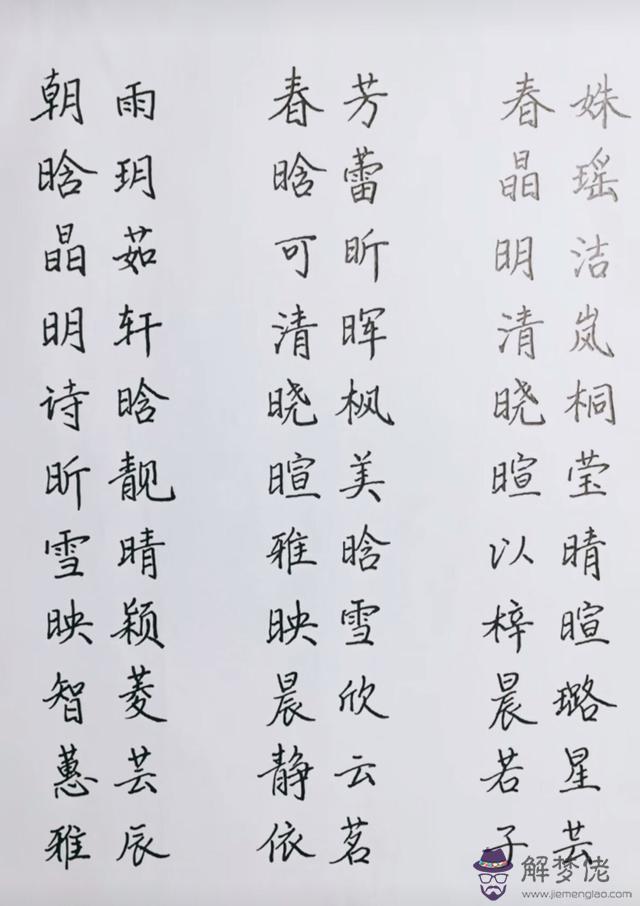 朝雨 春芳 春姝
晗玥 晗蕾 晶瑶
晶茹 可昕 明洁
明轩 清晖 清岚
诗晗 晓枫 晓桐
昕靓 暄美 暄莹
雪晴 雅晗 以晴
映颖 映雪 梓暄
智菱 晨欣 晨璐
蕙芸 静云 若星
雅辰 依茗 子芸
解梦佬
www.jiemenglao.com